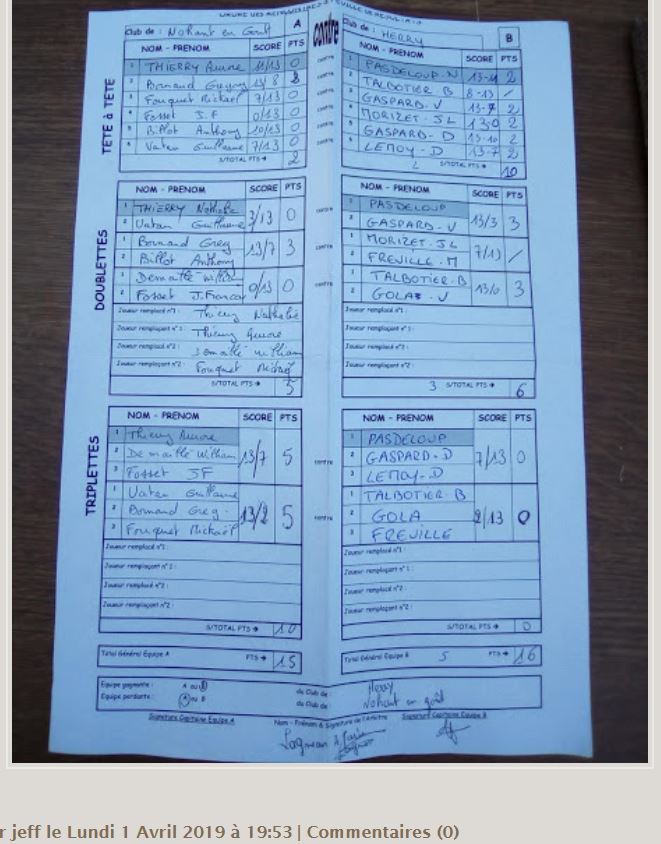 Club de : Nohant en Gout A contre Club de : HERRY B
NOM - PRENOM SCORE PTS NOM - PRENOM SCORE PTS
TÊTE à TÊTE
1 THIERRY Aurore 11/13 0 contre 1 PASDELOUP N 13-11 2
2 Bornand Gregory 13/8 2 contre 2 TALBOTIER. B 8-13 /
3 Fouquet Mickael 7/13 0 contre 3 GASPARD. V 13-7 2
4 Fosset J.F 0/13 0 contre 4 MORIZET. JL 13-0 2
5 Billot Anthony 10/13 0 contre 5 GASPARD- D 13-10 2
6 Vatan Guillaume 7/13 0 contre 6 LEMOY - D 13-7 2
S/TOTAL PTS → 2 S/TOTAL PTS → 10
NOM - PRENOM SCORE PTS NOM - PRENOM SCORE PTS
DOUBLETTES
1 THIERRY Nathalie 3/13 0 contre 1 PASDELOUP 13/3 3
2 Vatan Guillaume 2 GASPARD. V
1 Bornand Greg 13/7 3 contre 1 MORIZET JL 7/13 /
2 Billot Anthony 2 FREVILLE. M
1 Demaillé William 0/13 0 1 TALBOTIER. B 13/0 3
2 Fosset J.Francois 2 GOLA . V
Joueur remplacé n°1 : Thierry Nathalie Joueur remplacé n°1 :
Joueur remplaçant n°1 : Thierry Aurore Joueur remplaçant n°1 :
Joueur remplacé n°2 : Demaillé William Joueur remplacé n°2 :
Joueur remplaçant n°2 : Fouquet Mickael Joueur remplaçant n°2 :
S/TOTAL PTS → 3 3 S/TOTAL PTS → 6
NOM - PRENOM SCORE PTS NOM - PRENOM SCORE PTS
TRIPLETTES
1 Thierry Aurore 13/7 5 contre 1 PASDELOUP 7/13 0
2 Demaillé William 2 GASPARD - D
3 Fosset JF 3 LEMOY - D
1 Vatan Guillaume 13/2 5 contre 1 TALBOTIER. B 2/13 0
2 Bornand Greg. 2 GOLA
3 Fouquet Mickaël 3 FREVILLE
Joueur remplacé n°1 : Joueur remplacé n°1 :
Joueur remplaçant n°1 : Joueur remplaçant n°1 :
Joueur remplacé n°2 : Joueur remplacé n°2 :
Joueur remplaçant n°2 : Joueur remplaçant n°2 :
S/TOTAL PTS → 10 S/TOTAL PTS → 0
Total Général Equipe A PTS → 15 Total Général Equipe B 5 PTS → 16
Equipe gagnante : A ou B du Club de : Herry
Equipe perdante : A ou B du Club de : Nohant en goût
Signature Capitaine Equipe A Nom - Prénom & Signature de l'Arbitre Signature Capitaine Equipe B
r jeff le Lundi 1 Avril 2019 à 19:53 | Commentaires (0)